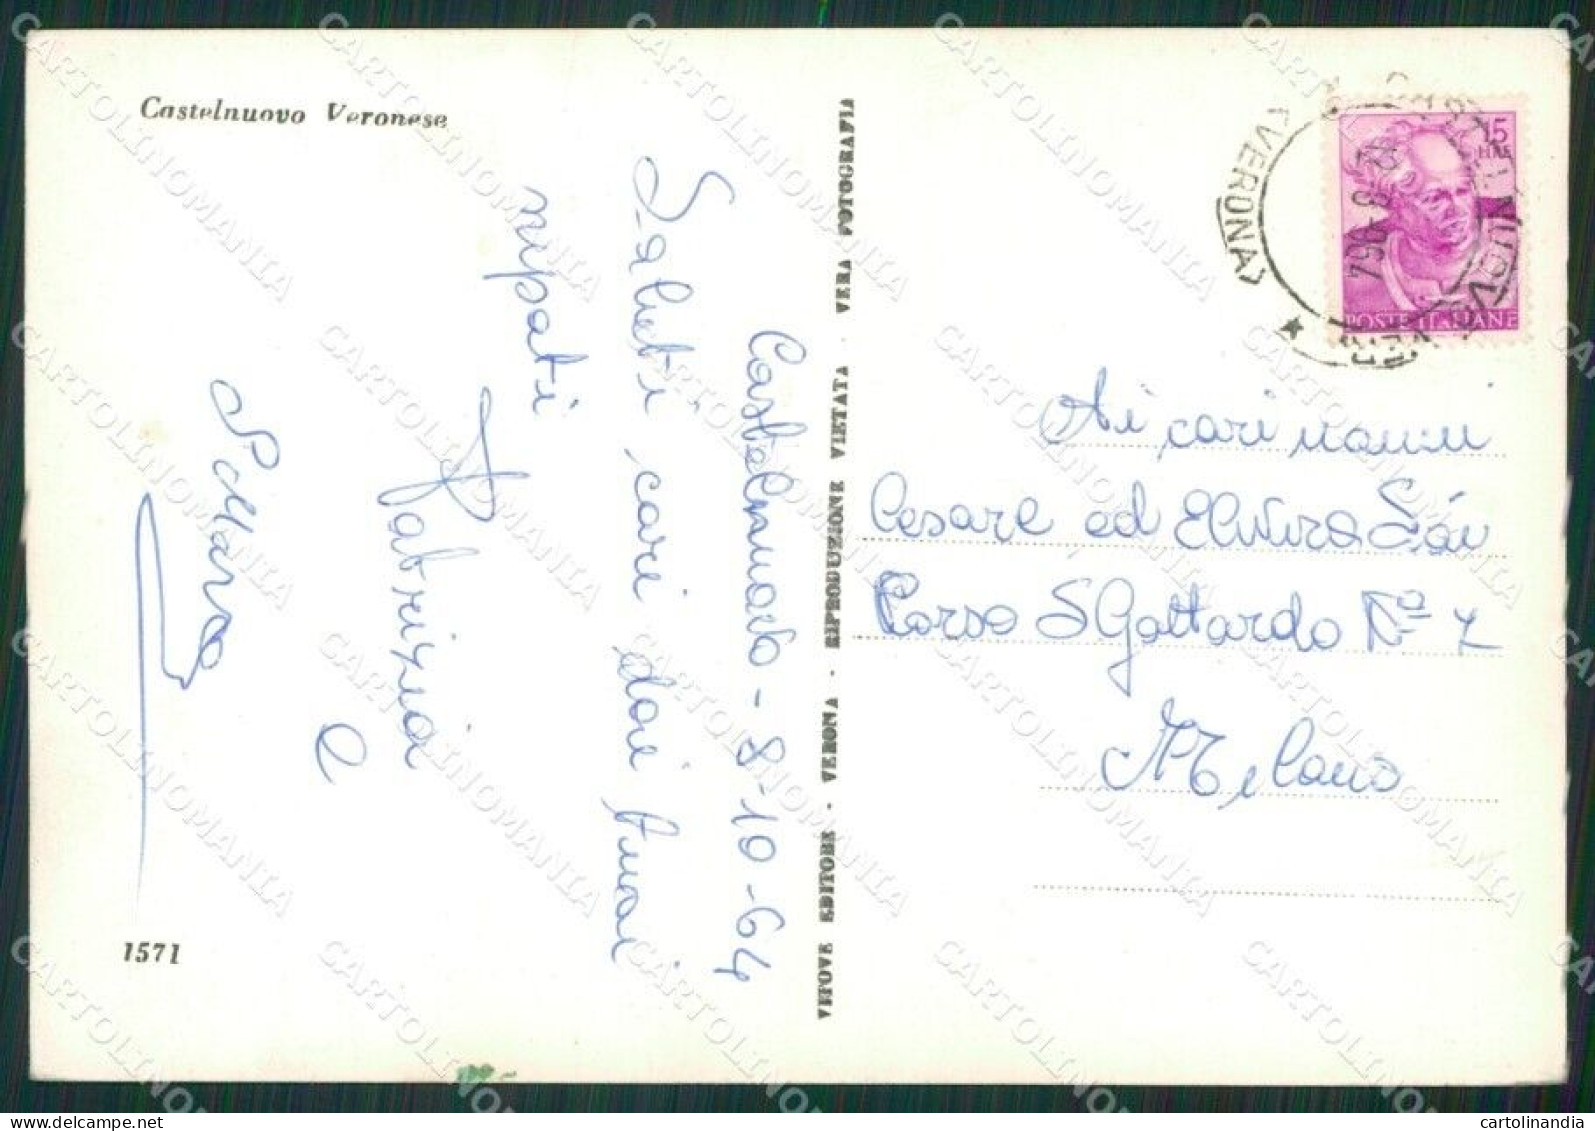 Castelnuovo Veronese
Castelnuovo - 8-10-64
Saluti cari dai Suoi
nipoti
Fabrizia
e
1571
VITOVE EDITORE - VERONA - RIPRODUZIONE VIETATA - VERA FOTOGRAFIA
15
LIRE
POSTE ITALIANE
CASTELNUOVO VER.
(VERONA)
Ai cari nonni
Cesare ed Elvira
Corso S Gottardo No 7
Milano
CARTOLINOMANIA
cartolinandia